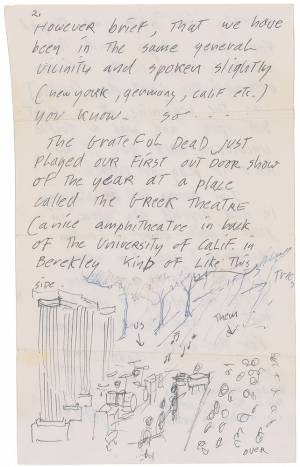 2.
However brief, that we have
been in the same general
vicinity and spoken slightly
(new york, germany, calif etc.)
you know. so ....
The Grateful Dead just
played our first out door show
of the year at a place
called the Greek Theatre
(a nice amphitheatre in back
of the University of Calif. in
Berekley kind of Like This
side
trees
us
them
over